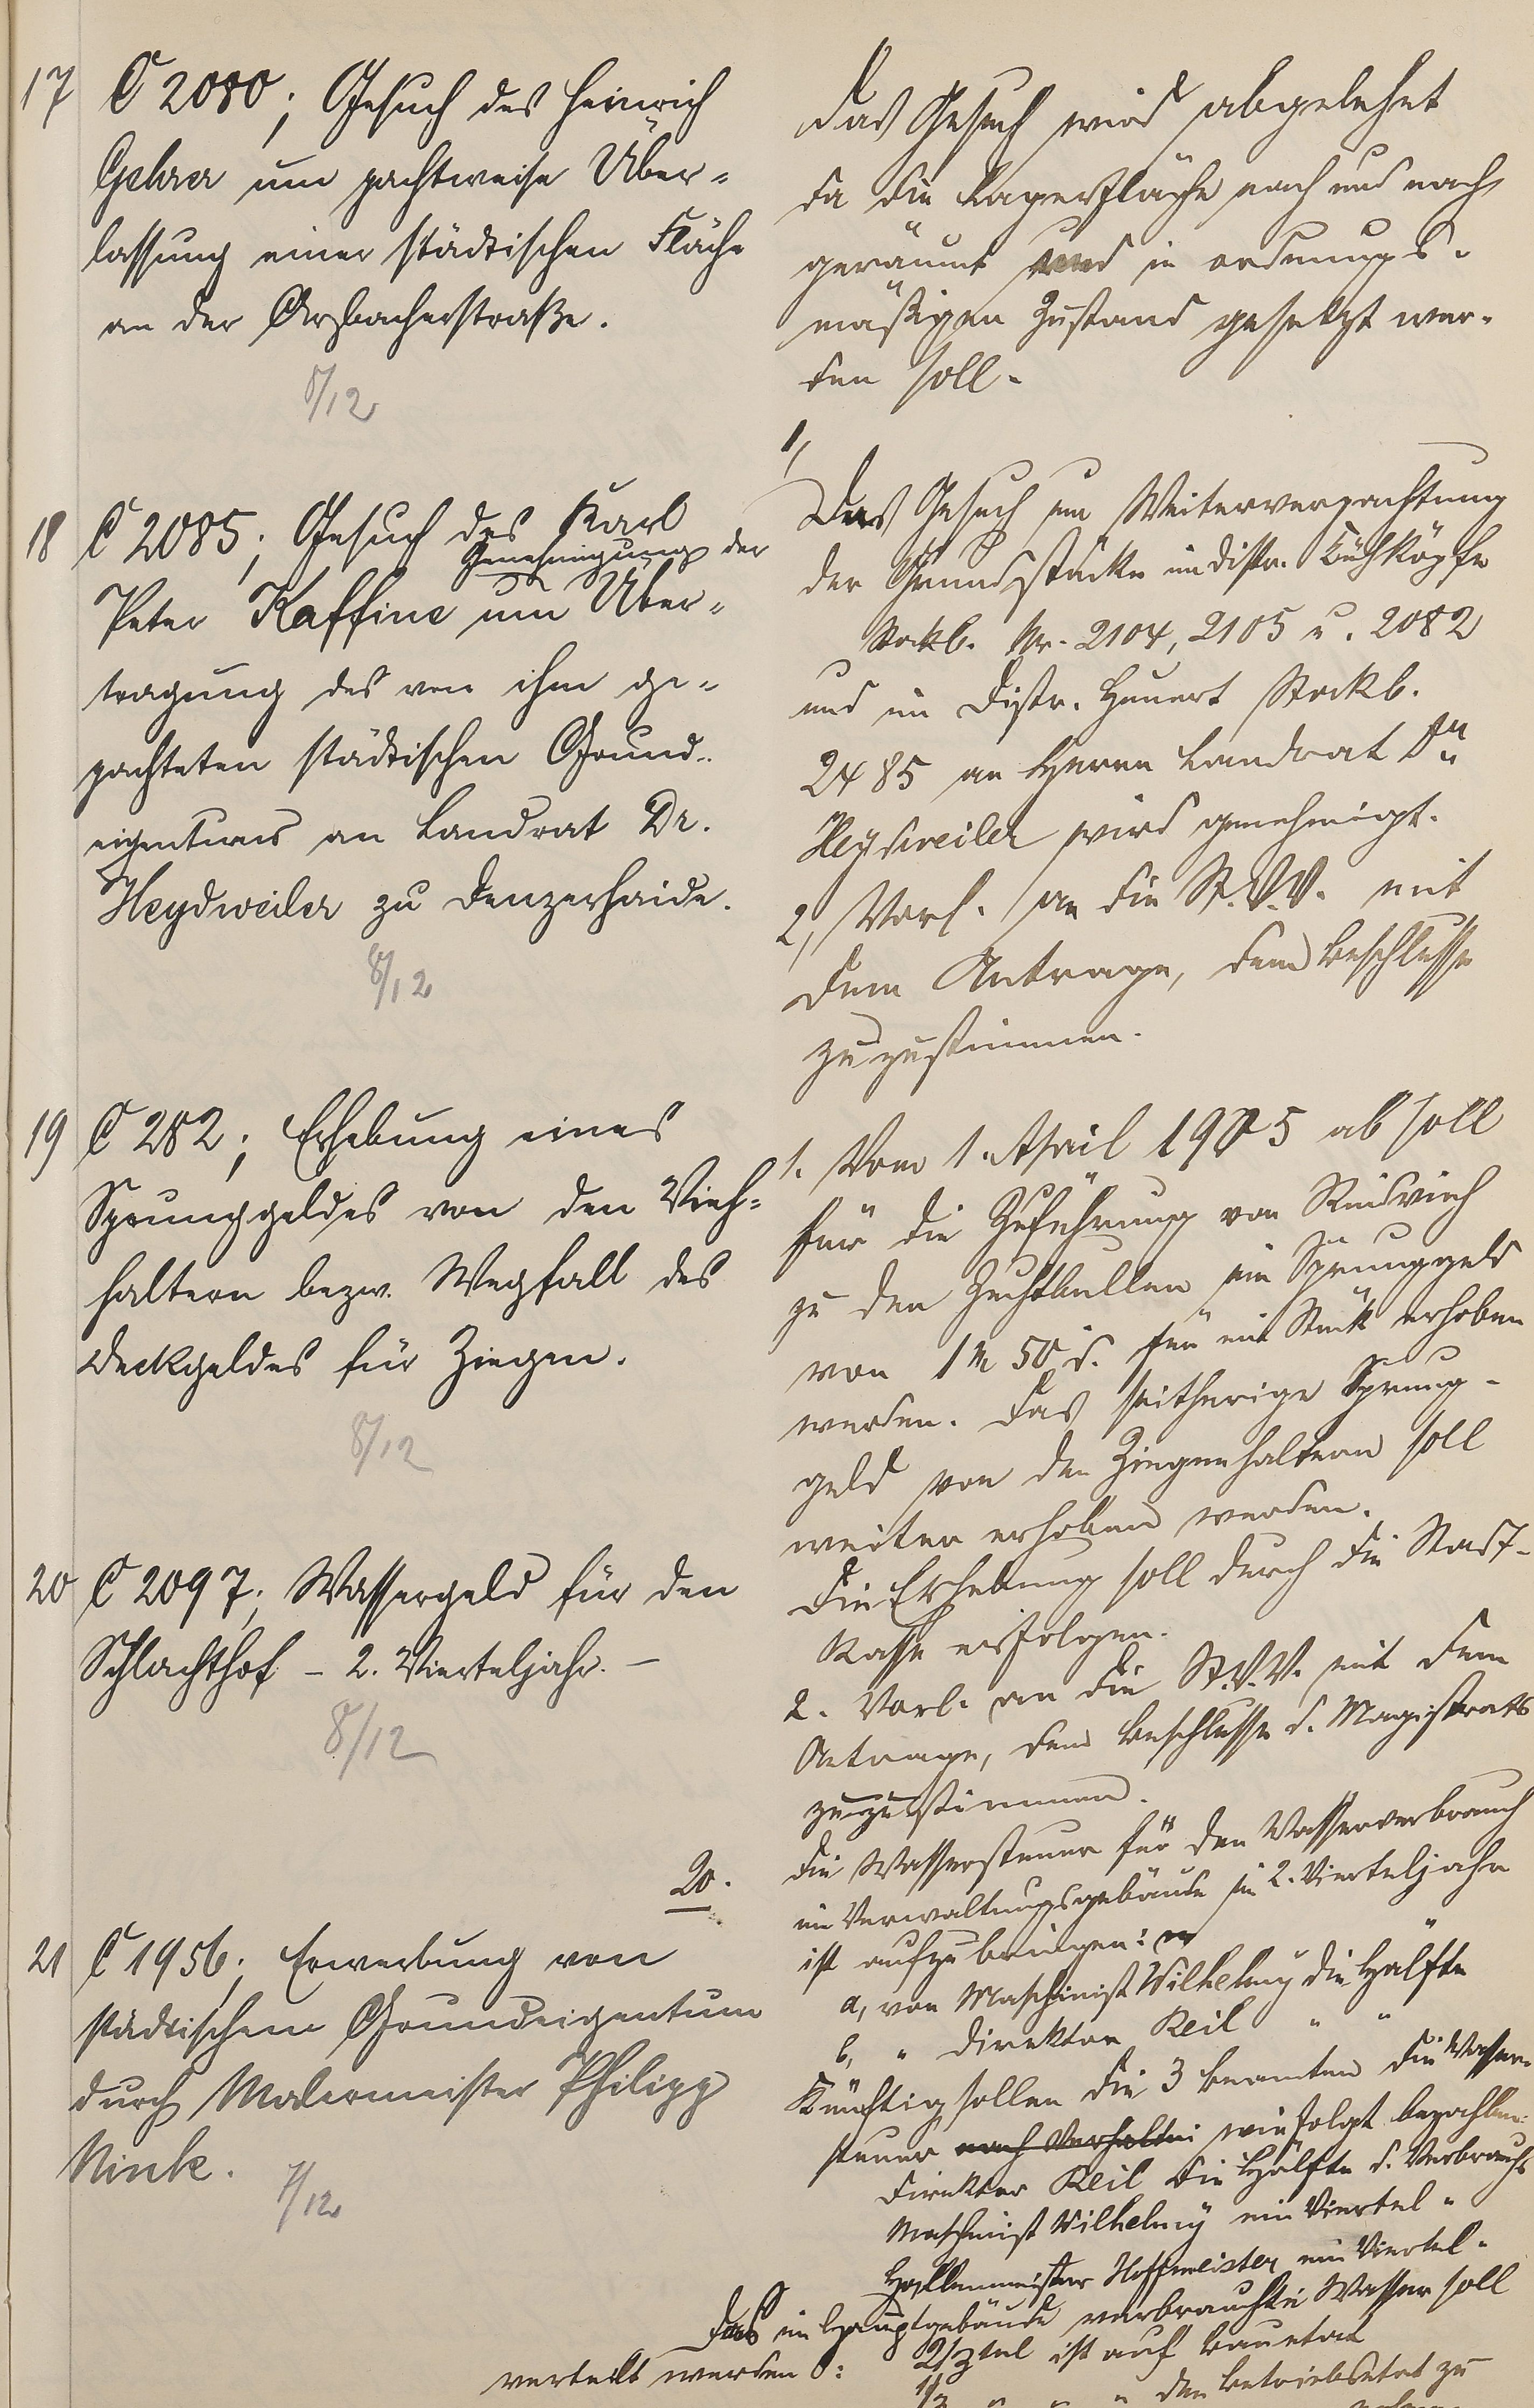 17 C 2080; Gesuch des Heinrich
Gehrer um pachtweise Über-
lassung einer städtischen Fläche
an der Arzbacherstraße.
8/12
Das Gesuch wird abgelehnt
da die Lagerfläche nach und nach
geräumt und in ordnungs-
mäßigen Zustand gesetzt wer-
den soll.
18 C 2085; Gesuch des Karl
Genehmigung der
Peter Kaffine um Über-
tragung des von ihm ge-
pachteten städtischen Grund-
eigentums an Landrat Dr.
Heydweiler zu Denzerhaide.
8/12
1,
Das Gesuch um Weiterverpachtung
der Grundstücke im Distr. Kuhköpfe
Stockb. Nr. 2104, 2105 u. 2082
und im Distr. Hunert Stockb.
2485 an Herrn Landrat Dr.
Heydweiler wird genehmigt.
2, Vorl. an die St.V.V. mit
dem Antrage, dem Beschlusse
zuzustimmen.
19 C 282; Erhebung eines
Sprunggeldes von den Vieh-
haltern bezw. Wegfall des
Deckgeldes für Ziegen.
8/12
1. Vom 1. April 1905 ab soll
für die Zuführung von Rindvieh
zu den Zuchtbullen ein Sprunggeld
von 1 M 50 d. für ein Stück erhoben
werden. Das seitherige Sprung-
geld von den Ziegenhaltern soll
weiter erhoben werden.
Die Erhebung soll durch die Stadt-
kasse erfolgen.
2. Vorl. an die St.V.V. mit dem
Antrage, dem Beschlusse d. Magistrats
zuzustimmen.
20 C 2097; Wassergeld für den
Schlachthof - 2. Vierteljahr. -
8/12
20.
Die Wassersteuer für den Wasserverbrauch
im Verwaltungsgebäude im 2. Vierteljahr
ist aufzubringen:
a, von Maschinist Wilhelmy die Hälfte
b, " Direktor Keil " "
Künftig sollen die 3 Beamten die Wasser-
steuer nach Verhältni wie folgt bezahlen:
Direktor Keil die Hälfte d. Verbrauchs
Maschinist Wilhelmy ein Viertel "
Hallenmeister Hoffmeister ein Viertel "
Das im Hauptgebäude verbrauchte Wasser soll
verteilt werden: 2/3tel ist auf Bauetat
1/3 " " " den Betriebsetat zu
21 C 1956; Erwerbung von
städtischem Grundeigentum
durch Malermeister Philipp
Nink.
7/12